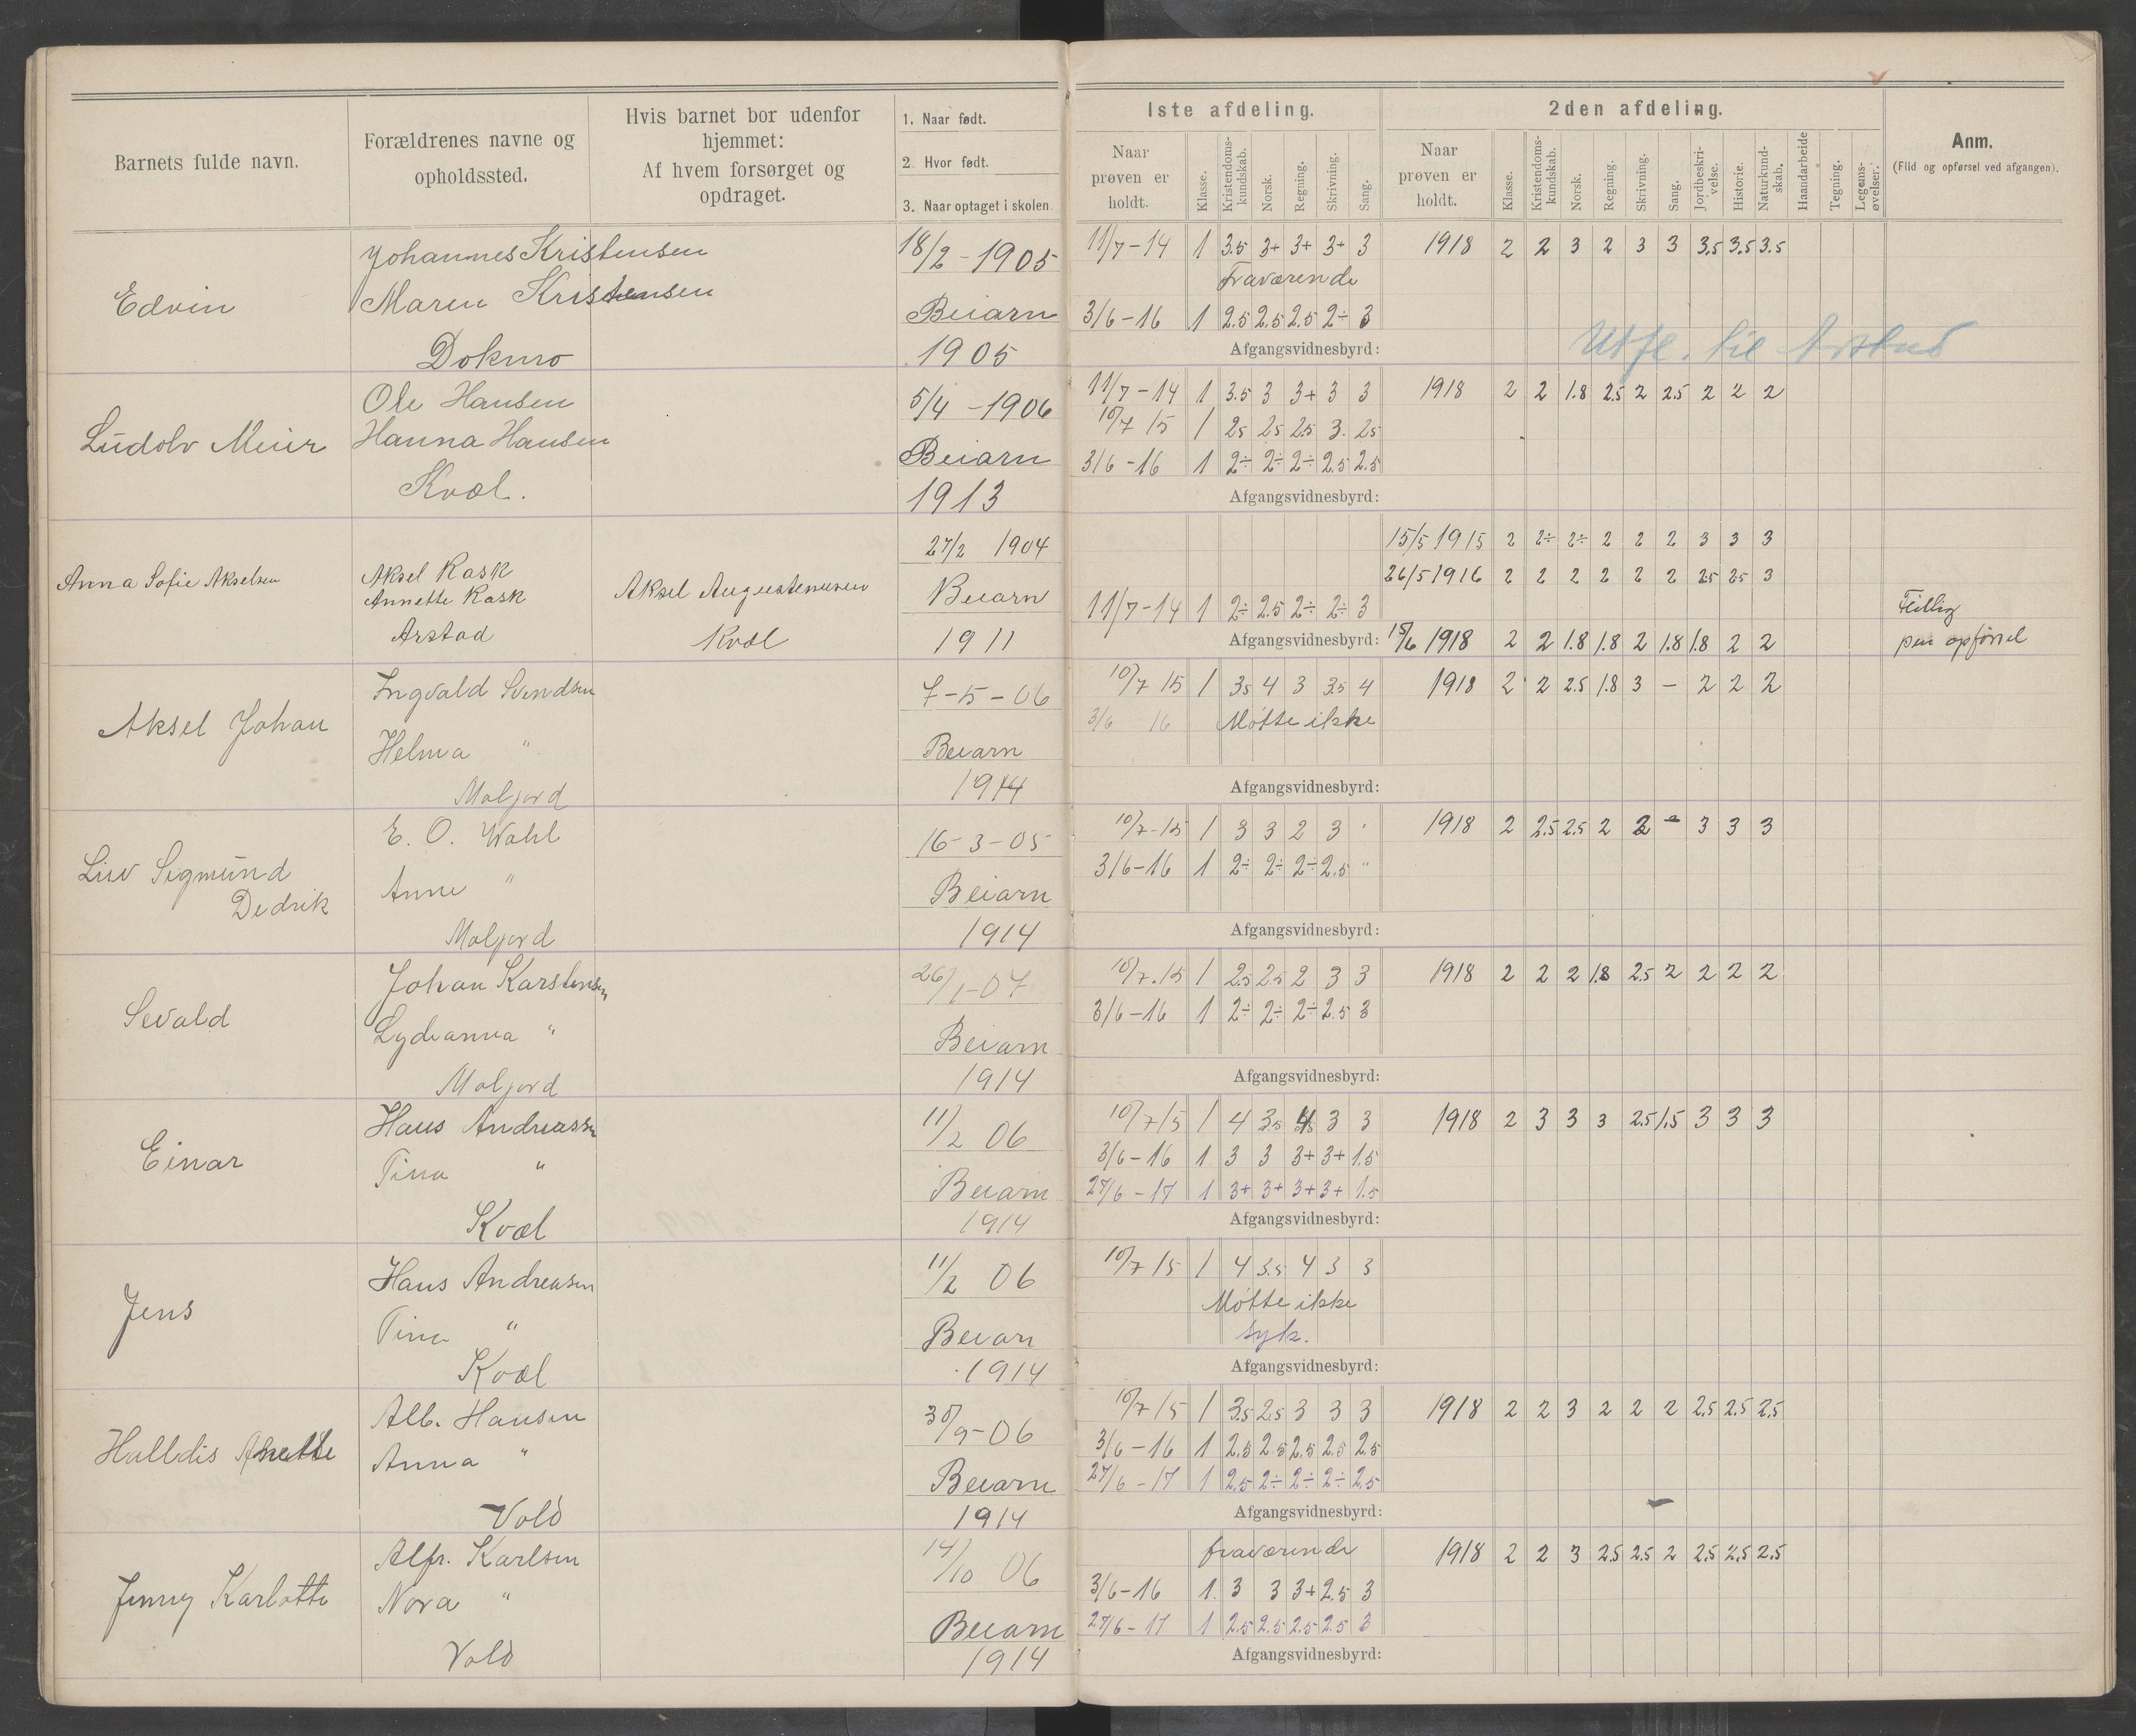 Barnets fulde navn.
Forældrenes navne og opholdssted.
Hvis barnet bor udenfor hjemmet:
Af hvem forsørget og opdraget.
1. Naar født.
2. Hvor født.
3. Naar optaget i skolen
1ste afdeling.
Naar prøven er holdt.
Klasse.
Kristendomskundskab.
Norsk.
Regning.
Skrivning.
Sang.
2den afdeling.
Naar prøven er holdt.
Klasse.
Kristendomskundskab.
Norsk.
Regning.
Skrivning.
Sang.
Jordbeskrivelse.
Historie.
Naturkundskab.
Haandarbeide
Tegning.
Legemsøvelser.
Anm.
(Flid og opførsel ved afgangen).
Edvin
Johannes Kristensen
Maren Kristensen
18/2 - 1905
Beiarn
1905
11/7-14 1 3.5 3+ 3+ 3+ 3
Fraværende
3/6-16 1 2.5 2.5 2.5 2÷ 3
Afgangsvidnesbyrd:
1918 2 2 3 2 3 3 3.5 3.5 3.5
til
Ludolv Meier
Ole Hansen
Hanna Hansen
Kvæl.
5/4 - 1906
Beiarn
1913
11/7-14 1 3.5 3 3+ 3 3
10/7 15 1 25 25 25 3. 25
3/6-16 1 2÷ 2÷ 2÷ 2.5 2.5
Afgangsvidnesbyrd:
1918 2 2 1.8 2.5 2 2.5 2 2 2
Anna Sofie Akselsen
Aksel Kask
Annette Kask
Arstad
Aksel Augustenusen
Kvæl
27/2 1904
Beiarn
1911
15/5 1915 2 2÷ 2÷ 2 2 2 3 3 3
26/5 1916 2 2 2 2 2 2 25 25 3
11/7-14 1 2÷ 2.5 2÷ 2÷ 3
Afgangsvidnesbyrd: 15/6 1918 2 2 1.8 1.8 2 1.8 1.8 2 2
Flittig
pen opførsel
Aksel Johan
Ingvald Svendsen
Helma "
Moljord
7-5-06
Beiarn
1914
10/7 15 1 35 4 3 35 4
3/6 16 Møtte ikke
Afgangsvidnesbyrd:
1918 2 2 2.5 1.8 3 - 2 2 2
Liw Sigmund
Dedrik
E. O. Wahl
Anne "
Moljord
16-3-05
Beiarn
1914
10/7-15 1 3 3 2 3
3/6-16 1 2÷ 2÷ 2÷ 2.5 "
Afgangsvidnesbyrd:
1918 2 2.5 2.5 2 2 - 3 3 3
Sevald
Johan Karstensen
Lydianna "
Moljord
26/1-07
Beiarn
1914
10/7.15 1 25 25 2 3 3
3/6-16 1 2÷ 2÷ 2÷ 2.5 3
Afgangsvidnesbyrd:
1918 2 2 2 1.8 2.5 2 2 2 2
Einar
Hans Andreassen
Tina "
Kvæl
11/2 06
Beiarn
1914
10/7 15 1 4 35 4 3 3
3/6-16 1 3 3 3+ 3+ 1.5
27/6-17 1 3+ 3+ 3+ 3+ 1.5
Afgangsvidnesbyrd:
1918 2 3 3 3 2.5 1.5 3 3 3
Jens
Hans Andreasen
Tina "
Kvæl
11/2 06
Beiarn
1914
10/7 15 1 4 3.5 4 3 3
Møtte ikke
syk.
Afgangsvidnesbyrd:
Halldis Anette
Alb. Hansen
Anna "
Vold
30/9-06
Beiarn
1914
10/7 15 1 35 25 3 3 3
3/6-16 1 2.5 2.5 2.5 2.5 2.5
27/6-17 1 2.5 2÷ 2÷ 2÷ 2.5
Afgangsvidnesbyrd:
1918 2 2 3 2 2 2 2.5 2.5 2.5
Jenny Karlotte
Alfr. Karlsen
Nora "
Vold
14/10 06
Beiarn
1914
fraværende
3/6-16 1. 3 3 3+ 2.5 3
27/6-17 1 2.5 2.5 2.5 2.5 3
Afgangsvidnesbyrd:
1918 2 2 3 2.5 2.5 2 2.5 2.5 2.5